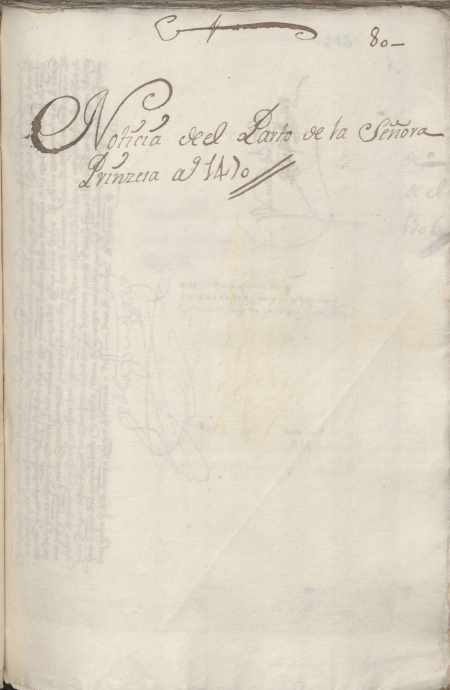 80-
Noticia de el Parto de la Señora
Prinzesa aº 1470